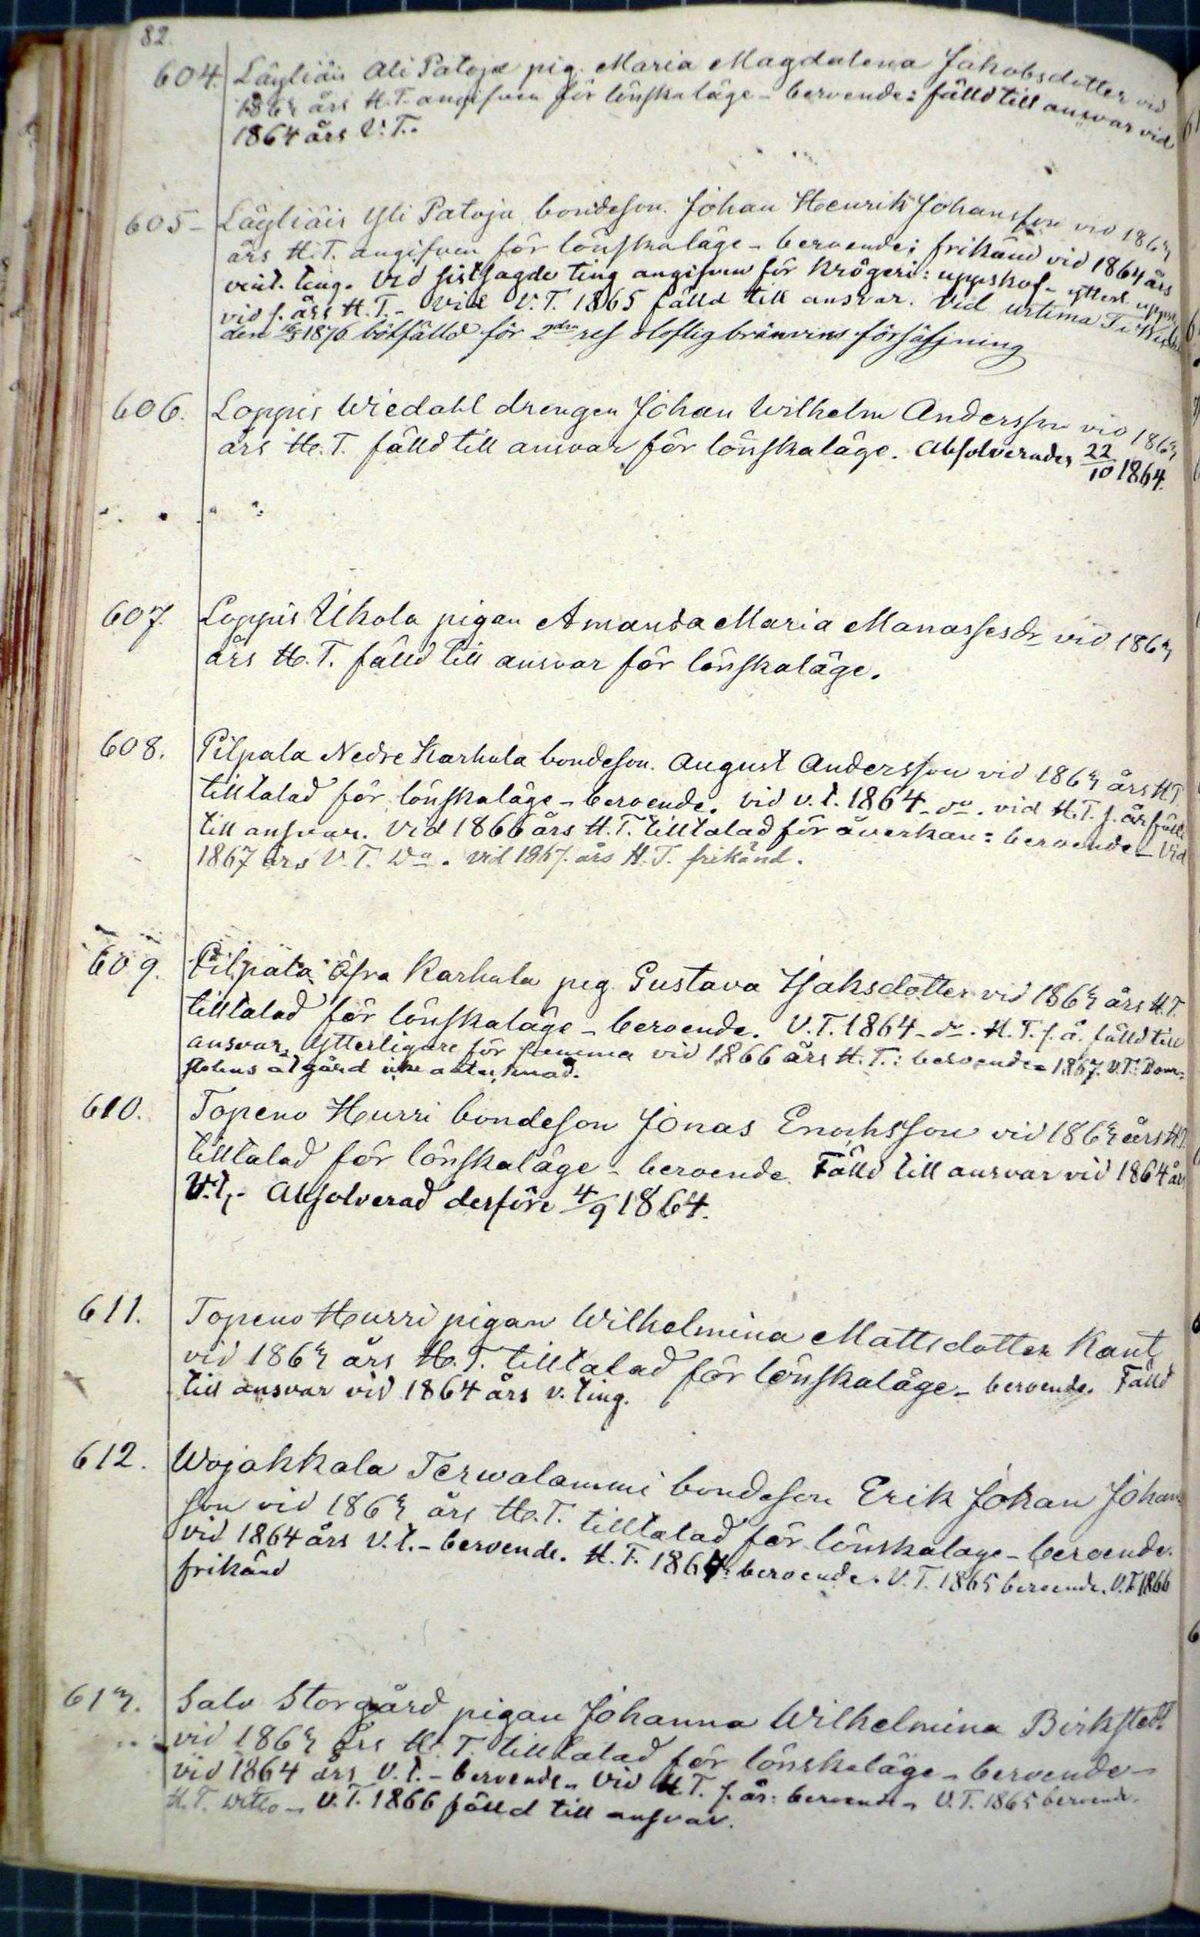 82.
604. Läyliäis Ali Patoja pig. Maria Magdalena Jakobsdotter vid
1863 års H.T. angifven för lönskaläge - beroende: fälld till ansvar vid
1864 års V.T.
605- Läyliäis Yli Patoja bondeson Johan Henrik Johansson vid 1863
års H.T. angifven för lönskaläge - beroende; frikänd vid 1864 års
vint. ting. Vid sistsagde ting angifven för krögeri: uppskof - ytterl. uppsk.
vid s. års H.T. - Vid V.T. 1865 fälld till ansvar. Vid urtima Ti
den 1870 bötfälld för 2dra res. oloflig bränvins försäljning
606. Loppis Wiedahl drengen Johan Wilhelm Andersson vid 1863
års H.T. fälld till ansvar för lönskaläge. Absolverades 22/10 1864.
607. Loppis Ukola pigan Amanda Maria Manassesdr vid 1863
års H.T. fälld till ansvar för lönskaläge.
608. Pilpala Nedre Karhula bondeson August Andersson vid 1863 års H.T.
tilltalad för lönskaläge - beroende. vid v.t. 1864 - do. vid H.T. s. år fälld
till ansvar. Vid 1866 års H.T. tilltalad för åverkan: beroende - Vid
1867 års V.T. Do. vid 1867 års H.T. frikänd.
609. Pilpala Öfra Karhula pig. Gustava Isaksdotter vid 1863 års H.T.
tilltalad för lönskaläge - beroende. V.T. 1864 - do. H.T. s.å. fälld till
ansvar. Ytterligare för samma vid 1866 års H.T.: beroende - 1867 V.T. Dom-
stolens åtgärd icke antecknad.
610. Topeno Hurri bondeson Jonas Enochsson vid 1863 års H.T.
tilltalad för lönskaläge - beroende. Fälld till ansvar vid 1864 års
V.t. - Absolverad derföre 4/9 1864.
611. Topeno Hurri pigan Wilhelmina Mattsdotter Kant
vid 1863 års H.T. tilltalad för lönskaläge - beroende. Fälld
till ansvar vid 1864 års v. ting.
612. Wojakkala Terwalammi bondeson Erik Johan Johans-
son vid 1863 års H.T. tilltalad för lönskaläge - beroende.
vid 1864 års V.t. - beroende. H.T. 1864: beroende. V.T. 1865 beroende. V.T. 1866
frikänd
613. Salo Storgård pigan Johanna Wilhelmina Birkstedt
vid 1863 års H.T. tilltalad för lönskaläge - beroende -
vid 1864 års V.t. - beroende - Vid H.T. s. år: beroende - V.T. 1865 beroende.
H.T. ditto - V.T. 1866 fälld till ansvar.